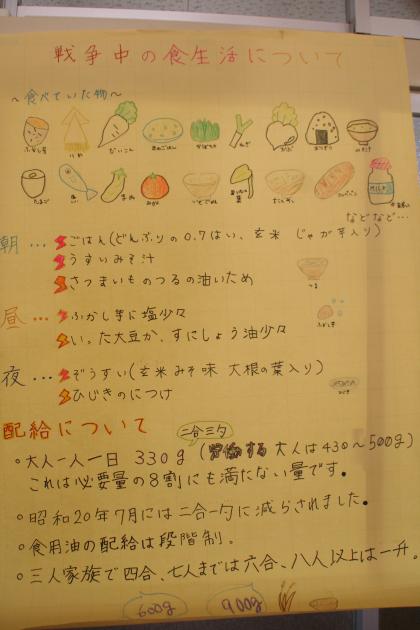 戦争中の食生活について
～食べていた物～
ふかし芋
だいこん
かぼちゃ
ねぎ
かぶ
おにぎり
たまご
なす
MILK
などなど…
朝… ごはん(どんぶりの0.7はい、玄米 じゃが芋入り)
うすいみそ汁
さつまいものつるの油いため
つる
昼… ふかし芋に塩少々
いった大豆か、すにしょう油少々
ふかし芋
夜… ぞうすい(玄米 みそ味 大根の葉入り)
ひじきのにつけ
配給について
二合三勺
。大人一人一日 330g (労働する大人は430~500g)
これは必要量の8割にも満たない量です。
。昭和20年7月には二合一勺に減らされました。
。食用油の配給は段階制。
。三人家族で四合、七人までは六合、八人以上は一升。
600g
900g